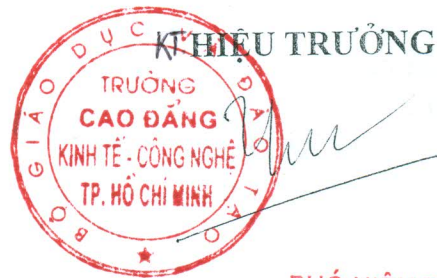 KT HIỆU TRƯỞNG
BỘ GIÁO DỤC VÀ ĐÀO TẠO
TRƯỜNG
CAO ĐẲNG
KINH TẾ - CÔNG NGHỆ
TP. HỒ CHÍ MINH